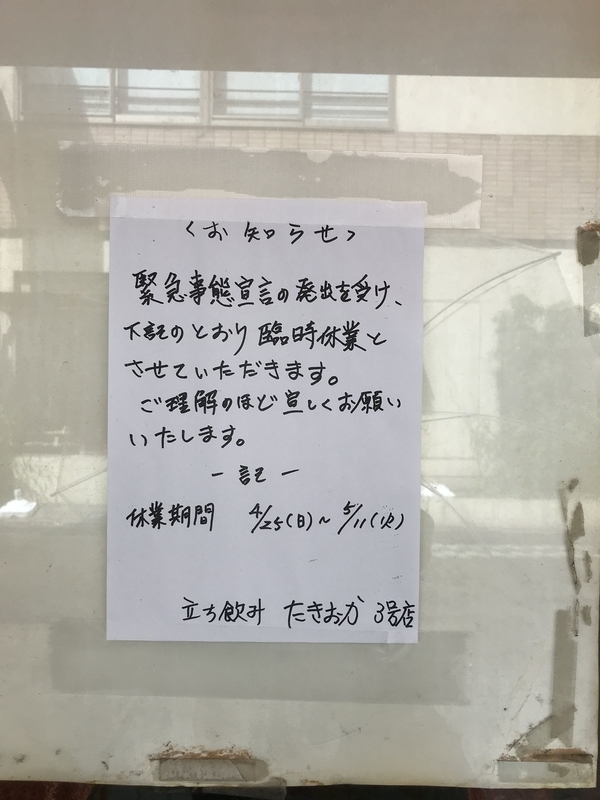 〈お知らせ〉
緊急事態宣言の発出を受け、
下記のとおり臨時休業と
させていただきます。
ご理解のほど宜しくお願い
いたします。
ー記ー
休業期間 4/25(日)~5/11(火)
立ち飲み たきおか 3号店